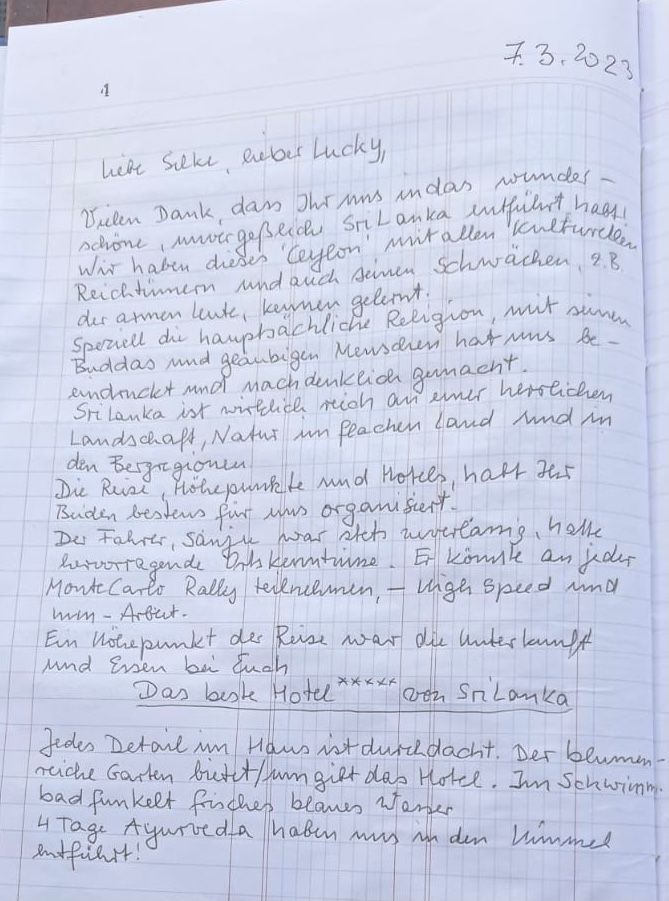 7.3.2023
1
liebe Silke, lieber Lucky,
Vielen Dank, dass Ihr uns in das wunder-
schöne, unvergeßliche Sri Lanka entführt habt!
Wir haben dieses 'Ceylon' mit allen kulturellen
Reichtümern und auch seinen Schwächen, z.B.
der armen Leute, kennen gelernt.
Speziell die hauptsächliche Religion, mit seinen
Buddas und gläubigen Menschen hat uns be-
eindruckt und nachdenklich gemacht.
Sri Lanka ist wirklich reich an einer herrlichen
Landschaft, Natur im flachen Land und in
den Bergregionen.
Die Reise, Höhepunkte und Hotels, habt Ihr
Beiden bestens für uns organisiert.
Der Fahrer, Sanju war stets zuverlässig, hatte
hervorragende Ortskenntnisse. Er könnte an jeder
Monte Carlo Rally teilnehmen, - High Speed und
- Arbeit.
Ein Höhepunkt der Reise war die Unterkunft
und Essen bei Euch
Das beste Hotel ***** von Sri Lanka
Jedes Detail im Haus ist durchdacht. Der blumen-
reiche Garten bietet/umgibt das Hotel. Im Schwimm-
bad funkelt frisches blaues Wasser
4 Tage Ayurveda haben uns in den Himmel
entführt!